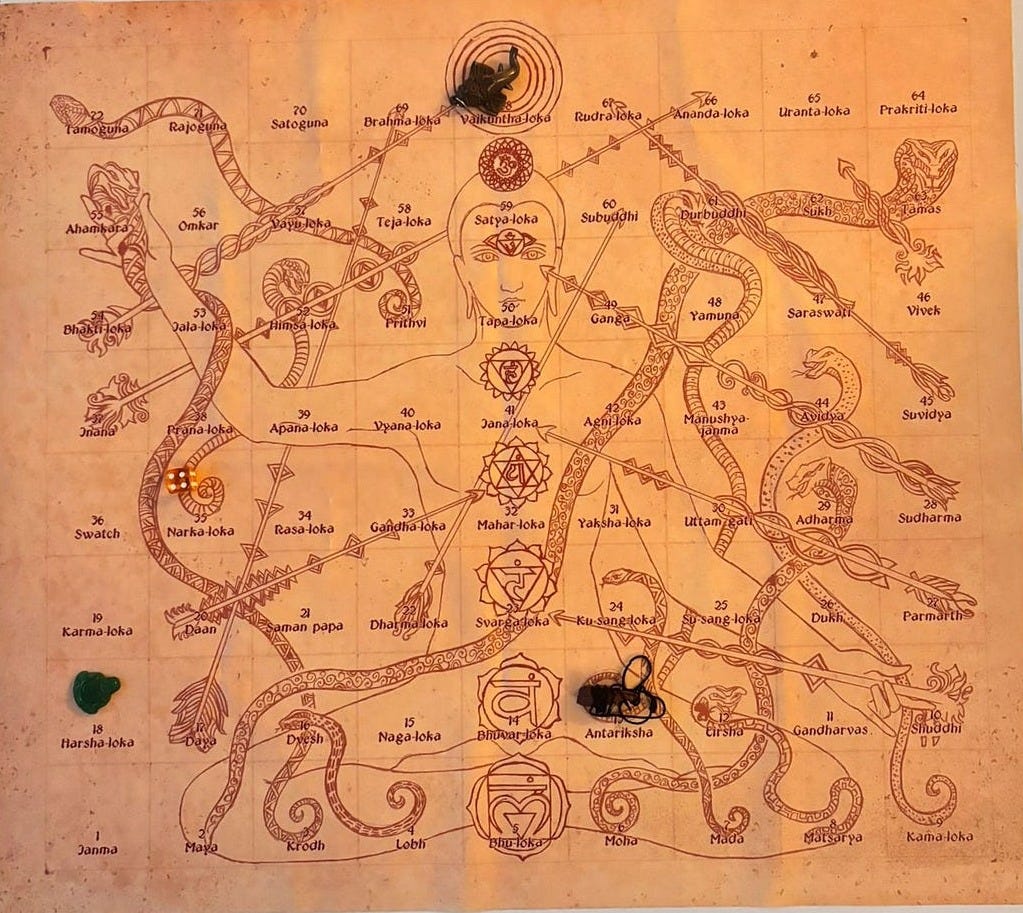 72
Tamoguna
71
Rajoguna
70
Satoguna
69
Brahma-loka
Vaikuntha-loka
67
Rudra-loka
66
Ananda-loka
65
Uranta-loka
64
Prakriti-loka
ॐ
55
Ahamkara
56
Omkar
57
Vayu-loka
58
Teja-loka
59
Satya-loka
60
Subuddhi
61
Durbuddhi
62
Sukh
63
Tamas
ॐ
54
Bhakti-loka
53
Jala-loka
52
Himsa-loka
51
Prithvi
50
Tapa-loka
49
Ganga
48
Yamuna
47
Saraswati
46
Vivek
हं
37
Jnana
38
Prana-loka
39
Apana-loka
40
Vyana-loka
41
Jana-loka
42
Agni-loka
43
Manushya-
janma
44
Avidya
45
Suvidya
यं
36
Swatch
35
Narka-loka
34
Rasa-loka
33
Gandha-loka
32
Mahar-loka
31
Yaksha-loka
30
Uttam-gati
29
Adharma
28
Sudharma
रं
19
Karma-loka
20
Daan
21
Saman papa
22
Dharma-loka
23
Svarga-loka
24
Ku-sang-loka
25
Su-sang-loka
26
Dukh
27
Parmarth
वं
18
Harsha-loka
17
Daya
16
Dvesh
15
Naga-loka
14
Bhuvar-loka
13
Antariksha
12
11
Gandharvas
10
Shuddhi
लं
1
Janma
2
Maya
3
Krodh
4
Lobh
5
Bhu-loka
6
Moha
7
Mada
8
Matsarya
9
Kama-loka